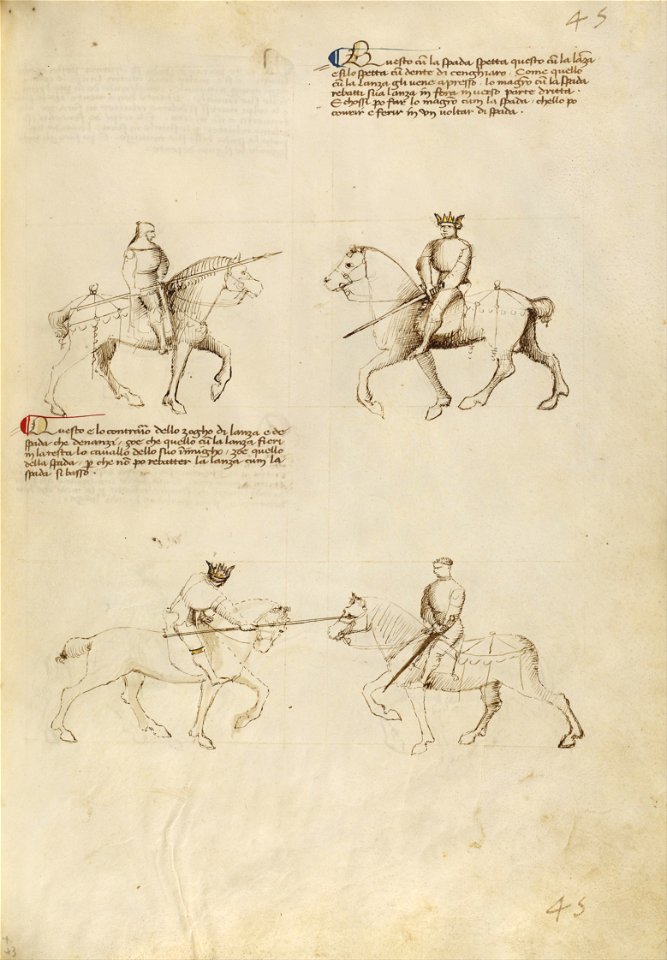 45
Questo cū la spada spetta questo cū la lāza
e si lo spetta cū dente di cenghiaro. Come quello
cū la lanza gli vene apresso. lo magro cū la spada
rebatti sua lanza in fora inverso parte dritta.
E chossi po far lo magro cum la spada. chello po
covrir e ferir in vn voltar di spada.
Questo e lo contrario dello zogho di lanza e de
spada che denanzi / zoe che quello cū la lanza fieri
in la testa lo cavallo dello suo inimigho / zoe quello
della spada / p che nō po rebatter la lanza cum la
spada si basso.
45
43